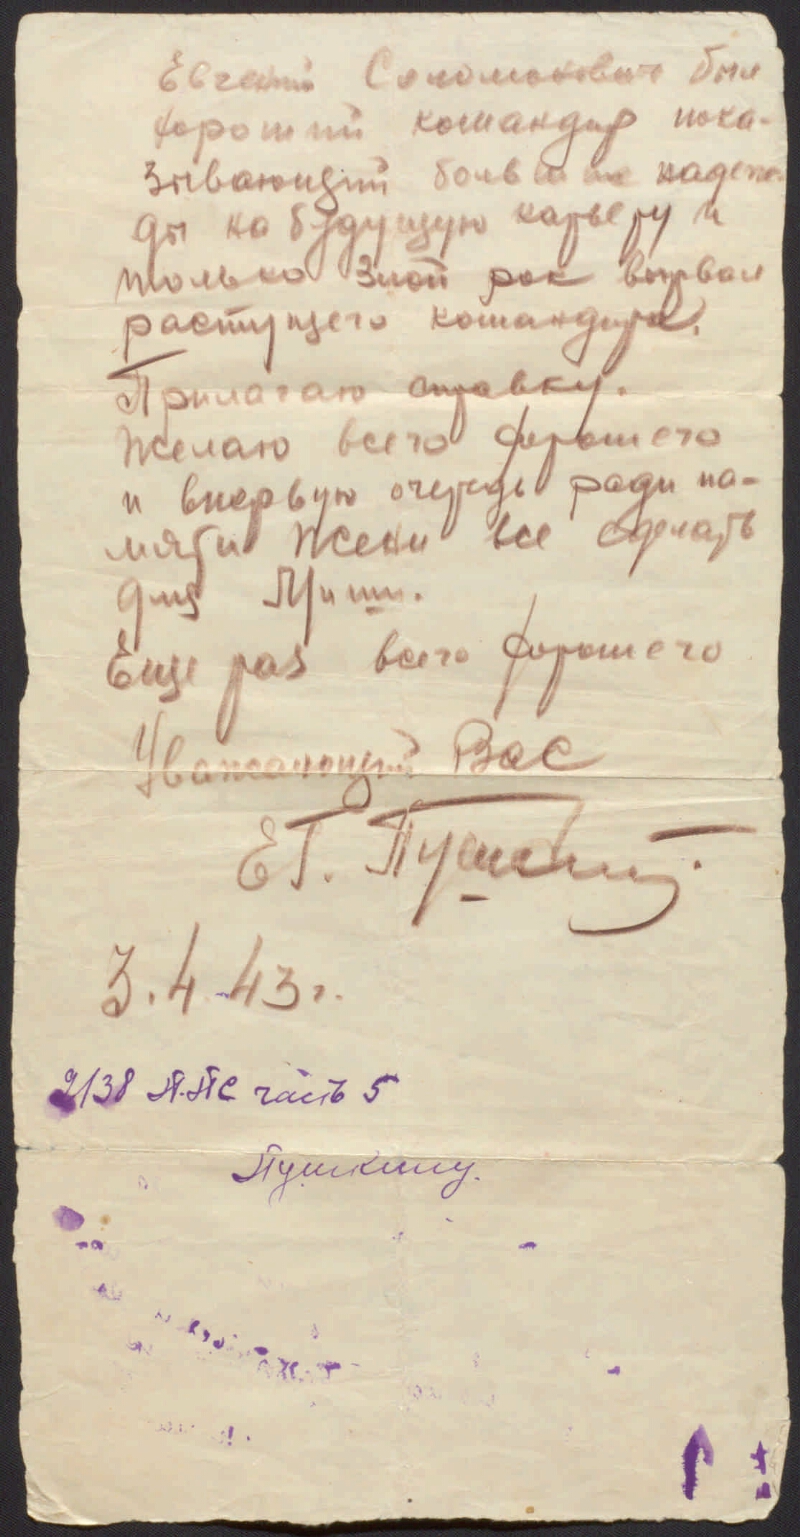 Евгений Соломонович был
хороший командир пока-
зывающий большие надеж-
ды на будущую карьеру и
только злой рок вырвал
растущего командира.
Прилагаю справку.
Желаю всего хорошего
и впервую очередь ради па-
мяти Жени все сделать
для Миши.
Еще раз всего хорошего
Уважающий Вас
ЕГ. Пушкин.
3.4.43г.
2138 П.ПС часть 5
Пушкину.